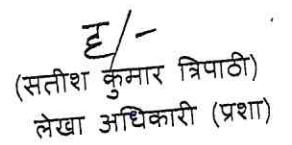 ह/-
(सतीश कुमार त्रिपाठी)
लेखा अधिकारी (प्रशा)